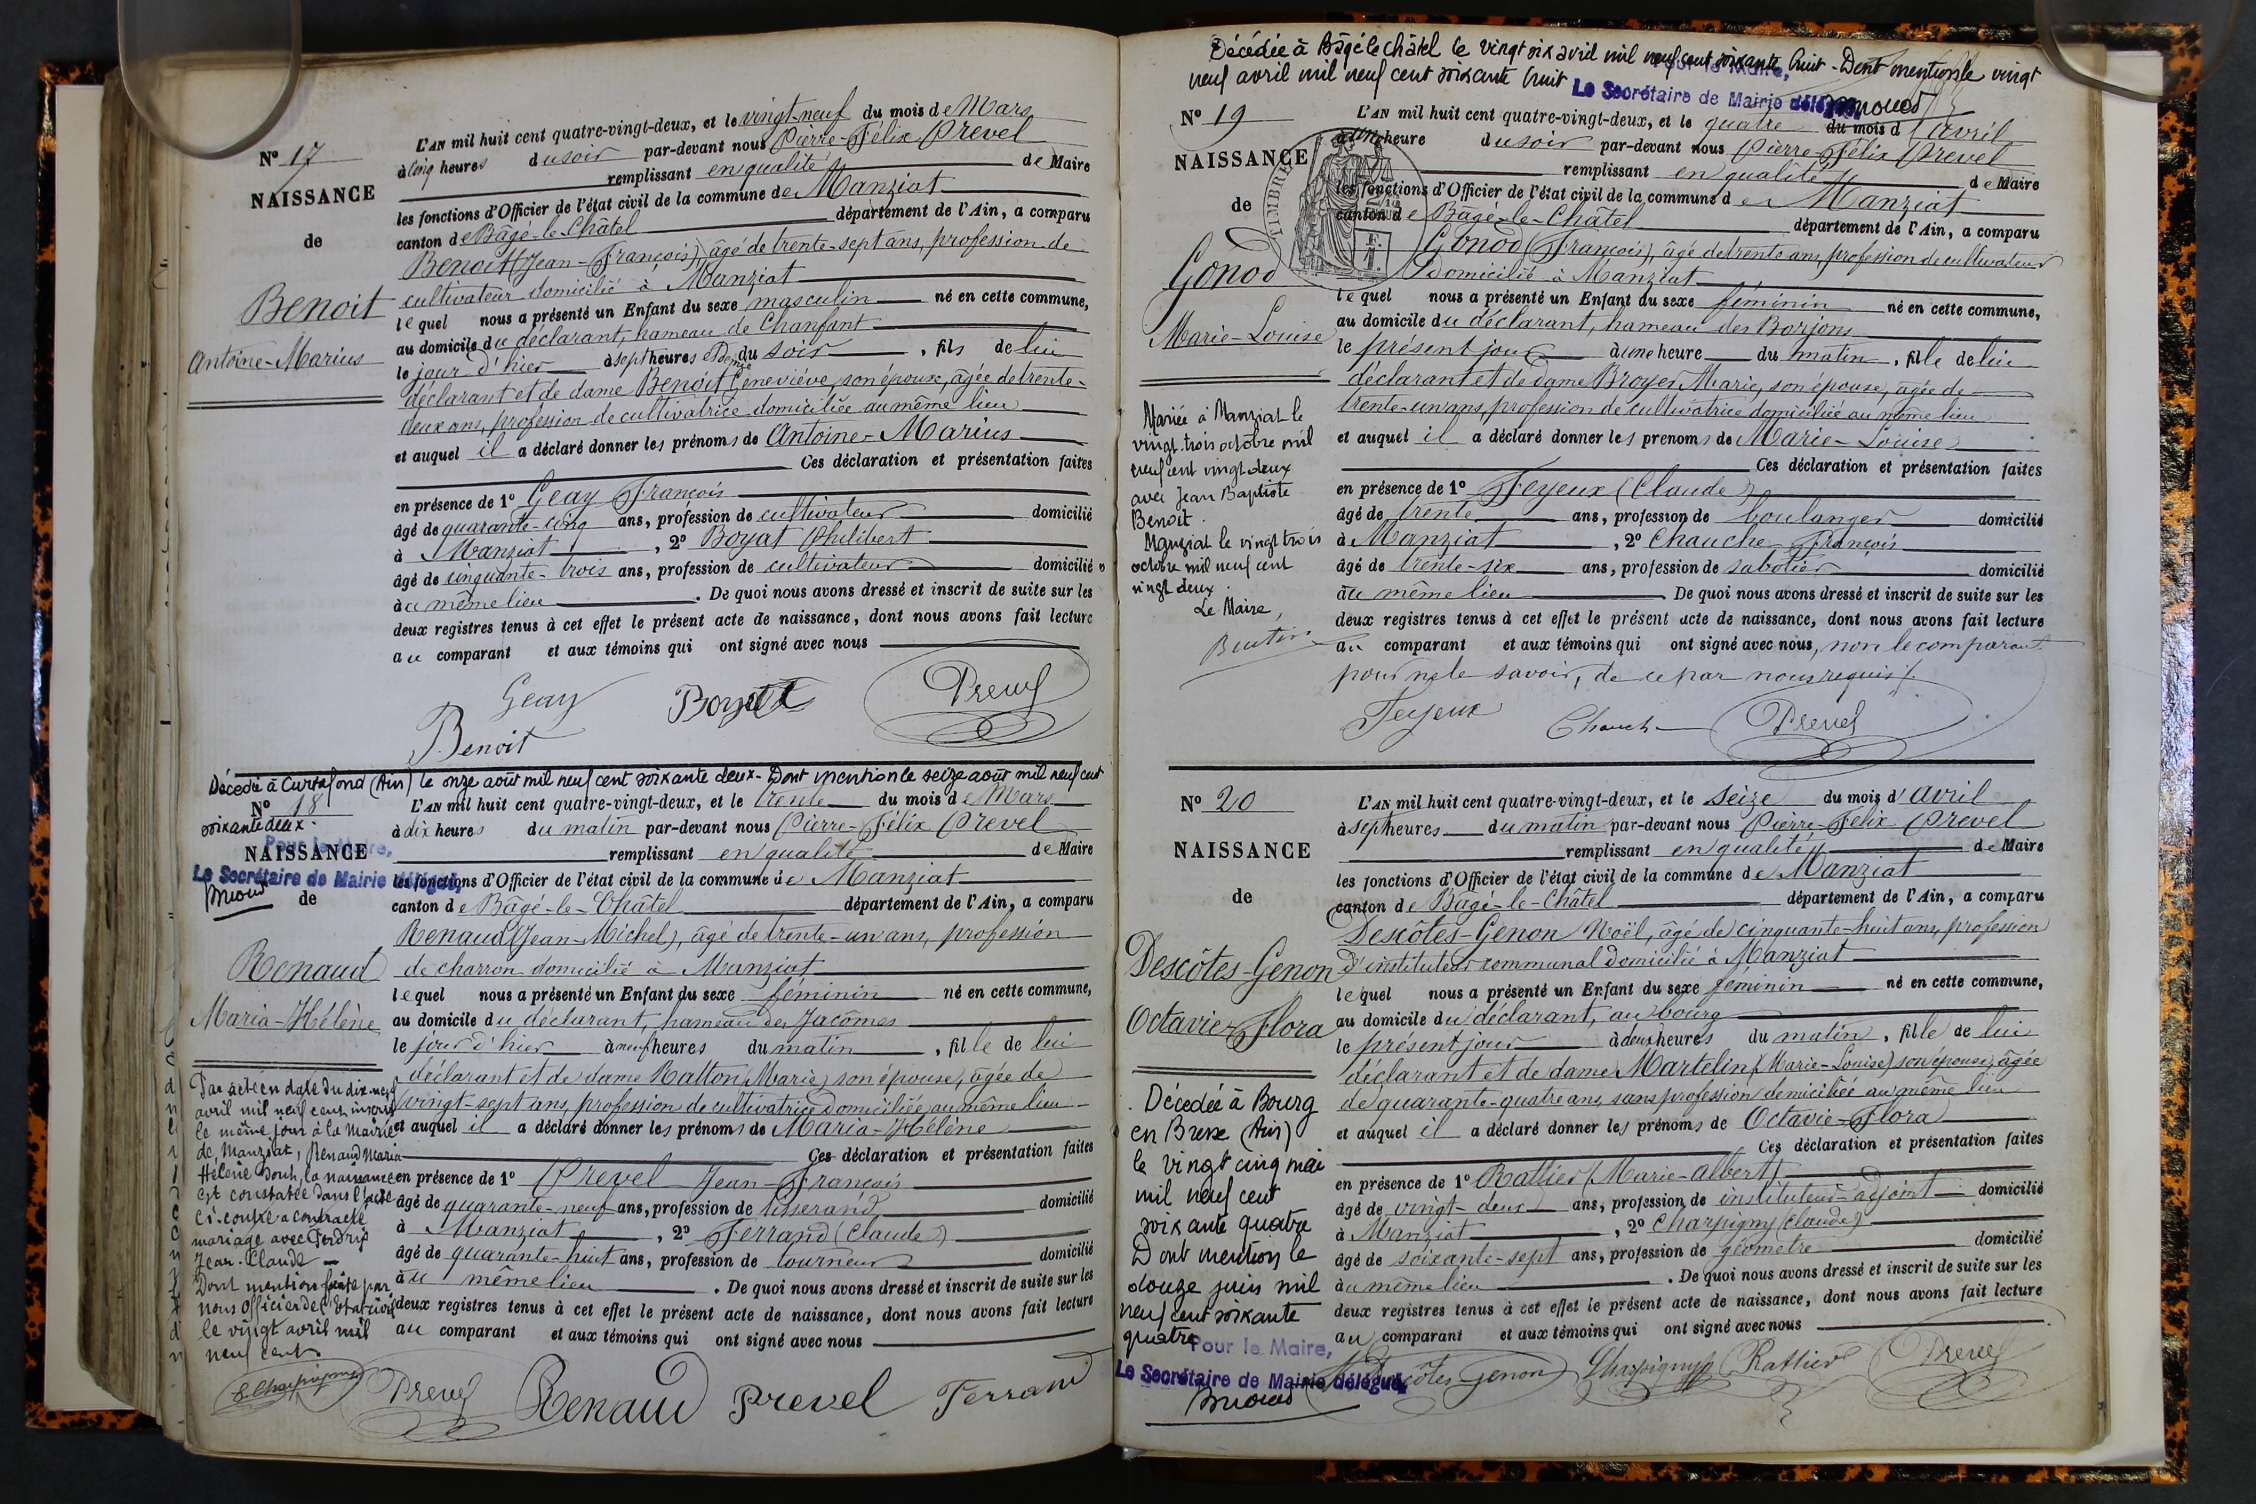 L'AN mil huit cent quatre-vingt-deux, et le vingt-neuf du mois de Mars
N° 17
à cinq heures du soir par-devant nous Pierre-Félix Prevel
remplissant en qualité de Maire
NAISSANCE
les fonctions d'Officier de l'état civil de la commune de Manziat
de
canton de Bâgé-le-Châtel département de l'Ain, a comparu
Benoit (Jean-François), âgé de trente-sept ans, profession de
Benoit
cultivateur domicilié à Manziat
lequel nous a présenté un Enfant du sexe masculin né en cette commune,
au domicile du déclarant, hameau de Chanfant
Antoine-Marius
le jour d'hier à sept heures du soir, fils de lui
déclarant et de dame Benoit Geneviève, son épouse, âgée de trente-
deux ans, profession de cultivatrice domiciliée au même lieu
et auquel il a déclaré donner les prénoms de Antoine-Marius
Ces déclaration et présentation faites
en présence de 1° Geay François
âgé de quarante-cinq ans, profession de cultivateur domicilié
à Manziat, 2° Boyat Philibert
âgé de cinquante-trois ans, profession de cultivateur domicilié
au même lieu. De quoi nous avons dressé et inscrit de suite sur les
deux registres tenus à cet effet le présent acte de naissance, dont nous avons fait lecture
au comparant et aux témoins qui ont signé avec nous
Geay Boyat Prevel
Benoit
Décédée à Curtafond (Ain) le onze août mil neuf cent soixante deux - Dont mention le seize août mil neuf cent
soixante deux.
Pour le Maire,
Le Secrétaire de Mairie délégué,
N° 18
L'AN mil huit cent quatre-vingt-deux, et le trente du mois de Mars
à dix heures du matin par-devant nous Pierre-Félix Prevel
NAISSANCE
remplissant en qualité de Maire
les fonctions d'Officier de l'état civil de la commune de Manziat
de
canton de Bâgé-le-Châtel département de l'Ain, a comparu
Renaud (Jean-Michel), âgé de trente-un ans, profession
Renaud
de charron domicilié à Manziat
lequel nous a présenté un Enfant du sexe féminin né en cette commune,
Maria-Hélène
au domicile du déclarant, hameau des Jacômes
le jour d'hier à neuf heures du matin, fille de lui
déclarant et de dame Ratton (Marie) son épouse, âgée de
vingt-sept ans, profession de cultivatrice domiciliée au même lieu
et auquel il a déclaré donner les prénoms de Maria-Hélène
Ces déclaration et présentation faites
en présence de 1° Prevel Jean-François
âgé de quarante-neuf ans, profession de tisserand domicilié
à Manziat, 2° Ferrand (Claude)
âgé de quarante-huit ans, profession de tourneur domicilié
au même lieu. De quoi nous avons dressé et inscrit de suite sur les
deux registres tenus à cet effet le présent acte de naissance, dont nous avons fait lecture
au comparant et aux témoins qui ont signé avec nous
Par acte en date du dix-neuf
avril mil neuf cent, inscrit
le même jour à la Mairie
de Manziat, Renaud Maria
Hélène dont la naissance
est constatée dans l'acte
ci-contre a contracté
mariage avec
Jean-Claude
Dont mention faite par
nous Officier de l'Etat civil
le vingt avril mil
neuf cent
Prevel Renaud Prevel Ferrand
Décédée à Bâgé le châtel le vingt six avril mil neuf cent soixante huit - Dont mention le vingt
neuf avril mil neuf cent soixante huit
Pour le Maire,
Le Secrétaire de Mairie délégué,
N° 19
L'AN mil huit cent quatre-vingt-deux, et le quatre du mois d'avril
à une heure du soir par-devant nous Pierre-Félix Prevel
NAISSANCE
remplissant en qualité de Maire
TIMBRE
les fonctions d'Officier de l'état civil de la commune de Manziat
de
canton de Bâgé-le-Châtel département de l'Ain, a comparu
Gonod (François), âgé de trente ans, profession de cultivateur
Gonod
domicilié à Manziat
lequel nous a présenté un Enfant du sexe féminin né en cette commune,
au domicile du déclarant, hameau des Borjons
Marie-Louise
le présent jour à une heure du matin, fille de lui
déclarant et de dame Broyer Marie, son épouse, âgée de
trente-un ans, profession de cultivatrice domiciliée au même lieu
et auquel il a déclaré donner les prénoms de Marie-Louise
Ces déclaration et présentation faites
en présence de 1° Feyeux (Claude)
âgé de trente ans, profession de boulanger domicilié
à Manziat, 2° Chauche François
âgé de trente-six ans, profession de sabotier domicilié
au même lieu De quoi nous avons dressé et inscrit de suite sur les
deux registres tenus à cet effet le présent acte de naissance, dont nous avons fait lecture
au comparant et aux témoins qui ont signé avec nous, non le comparant
pour ne le savoir, de ce par nous requis.
Mariée à Manziat le
vingt-trois octobre mil
neuf cent vingt deux
avec Jean Baptiste
Benoit.
Manziat le vingt trois
octobre mil neuf cent
vingt deux
Le Maire,
Feyeux Chauche Prevel
N° 20
L'AN mil huit cent quatre-vingt-deux, et le seize du mois d'avril
à sept heures du matin par-devant nous Pierre-Félix Prevel
NAISSANCE
remplissant en qualité de Maire
les fonctions d'Officier de l'état civil de la commune de Manziat
de
canton de Bâgé-le-Châtel département de l'Ain, a comparu
Descôtes-Genon Noël, âgé de cinquante-huit ans, profession
Descôtes-Genon
d'instituteur communal domicilié à Manziat
lequel nous a présenté un Enfant du sexe féminin né en cette commune,
Octavie-Flora
au domicile du déclarant, au bourg
le présent jour à deux heures du matin, fille de lui
déclarant et de dame Martelin (Marie-Louise) son épouse, âgée
de quarante-quatre ans, sans profession domiciliée au même lieu
et auquel il a déclaré donner les prénoms de Octavie-Flora
Ces déclaration et présentation faites
en présence de 1° Rattier (Marie-Albert)
âgé de vingt-deux ans, profession de instituteur-adjoint domicilié
à Manziat, 2° Charpigny (Claude)
âgé de soixante-sept ans, profession de géomètre domicilié
au même lieu. De quoi nous avons dressé et inscrit de suite sur les
deux registres tenus à cet effet le présent acte de naissance, dont nous avons fait lecture
au comparant et aux témoins qui ont signé avec nous
Décédée à Bourg
en Bresse (Ain)
le vingt cinq mai
mil neuf cent
soixante quatre
Dont mention le
douze juin mil
neuf cent soixante
quatre
Pour le Maire,
Le Secrétaire de Mairie délégué,
Descôtes Genon Charpigny Rattier Prevel